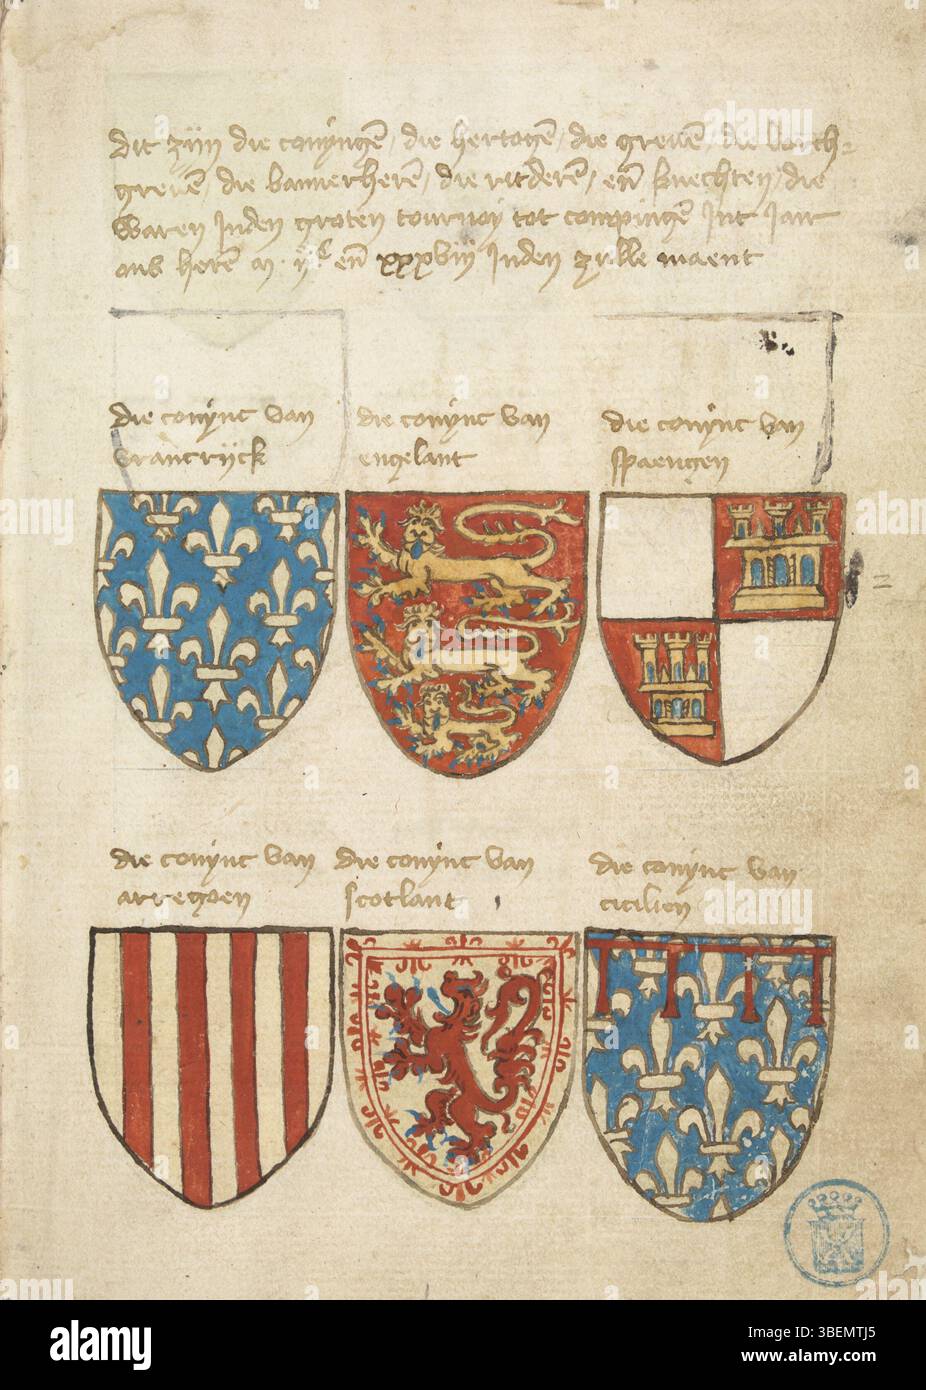 dit zijn die conynghē / die hertogē / die grevē / die borch=
grevē / die bannerherē / die ridderē / eñ knechten / die
waren Inden groten tournoy tot compingē Int Jaer
ons herē eñ xxxviij Inden zelle maent
die conync van
vrancrijck
die conync van
engelant
die conync van
spaengen
die conync van
arregoen
die conync van
scotlant
die conync van
cicilien
alamy
Image ID: 3BEMTJ5
www.alamy.com